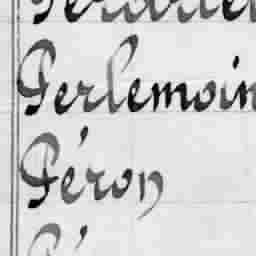 Perlemoin
Péron